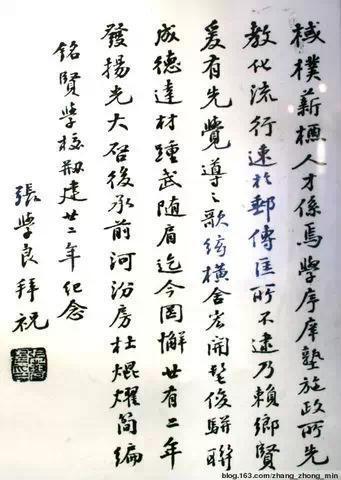 棫樸薪槱人才係焉學序庠塾施政所先
教化流行速於郵傳匡所不逮乃賴鄉賢
爰有先覺導之歌絃橫舍宏開髦俊駢聯
成德達材踵武隨肩迄今罔懈廿有二年
發揚光大啓後承前河汾房杜焜燿簡編
銘賢學校刱建廿二年紀念
張學良拜祝
blog.163.com/zhang_zhong_min